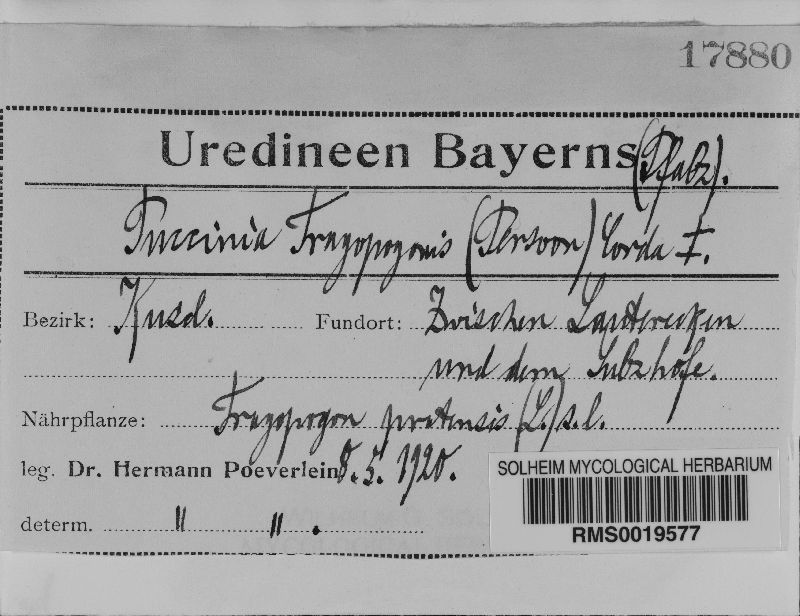 17880
Uredineen Bayerns (Pfalz).
Puccinia Tragopogonis (Persoon) Corda I.
Bezirk: Kusel. Fundort: Zwischen Lauterecken
und dem Sulzhofe.
Nährpflanze: Tragopogon pratensis (L.) s. l.
leg. Dr. Hermann Poeverlein 8. 5. 1920.
determ. " " .
SOLHEIM MYCOLOGICAL HERBARIUM
RMS0019577